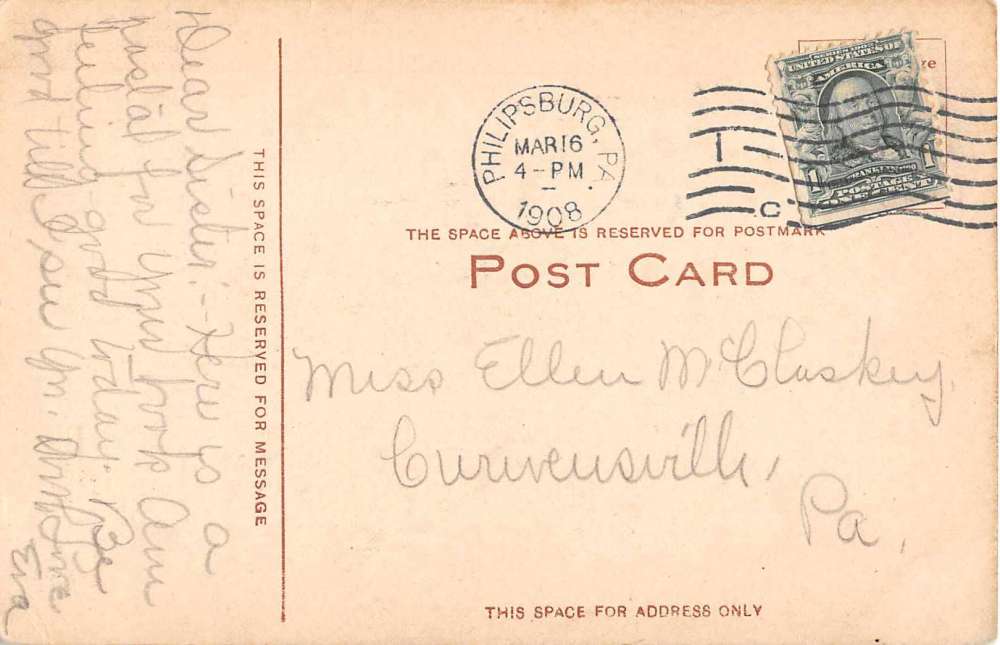 Dear Sister:- Here is a
postal for your book Am
feeling good today. Be
good till I see you.
Eva
THIS SPACE IS RESERVED FOR MESSAGE
PHILIPSBURG, PA.
MAR 16
4-PM
1908
SERIES 1902
UNITED STATES OF
AMERICA
FRANKLIN
1 POSTAGE 1
ONE CENT
re
C
THE SPACE ABOVE IS RESERVED FOR POSTMARK
POST CARD
Miss Ellen McClaskey,
Curwensville,
Pa,
THIS SPACE FOR ADDRESS ONLY